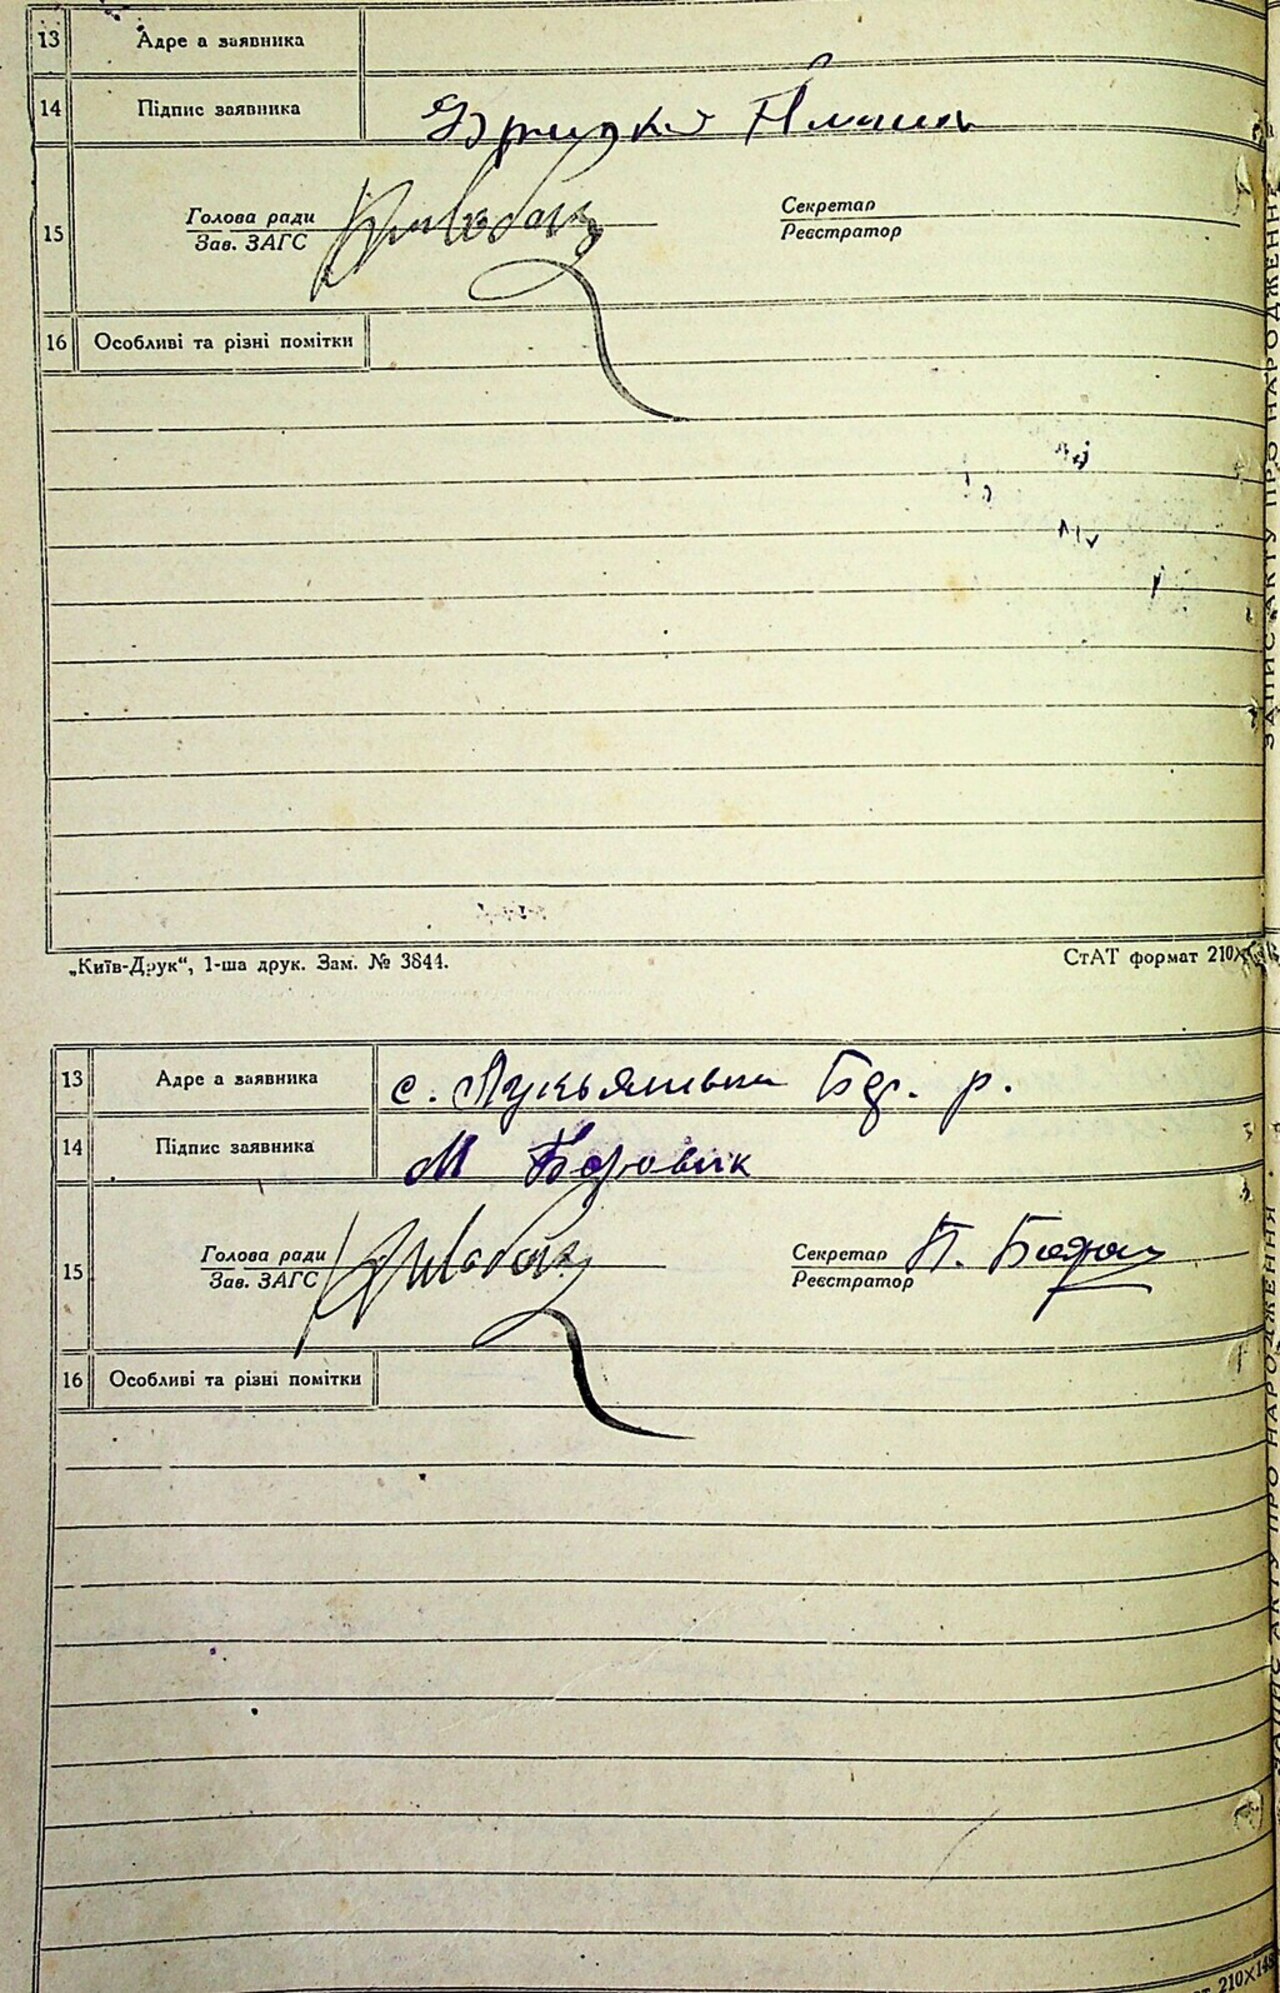 13 Адре а заявника
14 Підпис заявника
15 Голова ради
Зав. ЗАГС
Секретар
Реєстратор
16 Особливі та різні помітки
„Київ-Друк“, 1-ша друк. Зам. № 3844.
СтАТ формат 210×
ЗАПИС АКТУ ПРО НАРОДЖЕННЯ
13 Адре а заявника
с. Лукьянівка р.
14 Підпис заявника
М Боровик
15 Голова ради
Зав. ЗАГС
Секретар
Реєстратор
П.
16 Особливі та різні помітки
210×148
ЗАПИС АКТУ ПРО НАРОДЖЕННЯ